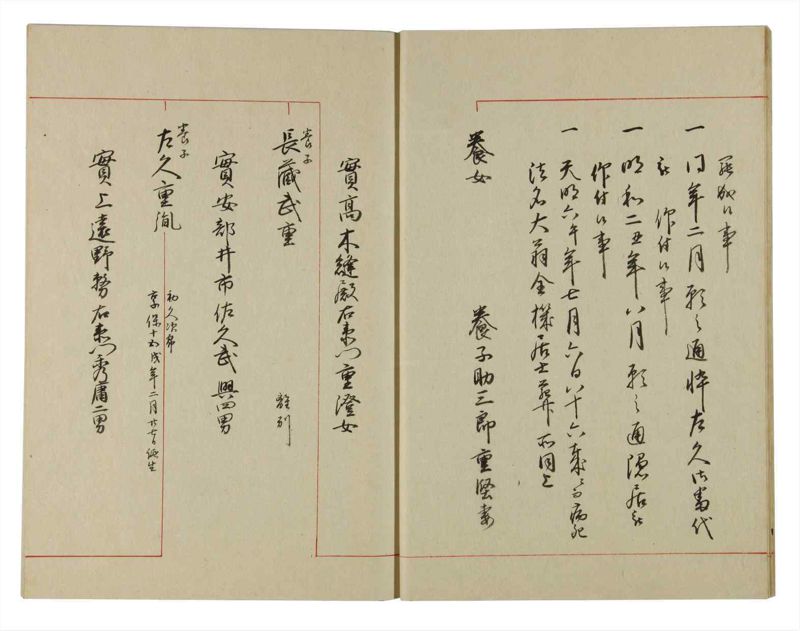 一 同年二月願之通悴左久御番代
被 仰付候事
一 明和二丑年八月願之通隠居被
仰付候事
一 天明六午年七月六日八十六歳ニ而病死
法名大翁全機居士葬所同上
養女
養子助三郎重堅妻
實高木縫殿右衛門重澄女
離別
養子
長蔵武重
實安部井市佐久武興四男
養子
左久重胤
初久次郎
享保十五戌年二月廿七日誕生
實上遠野勢右衛門秀庸二男